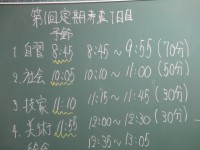 第1回定期考査1日目
予鈴
1 自習 8:45 8:45~9:55(70分)
2. 社会 10:05 10:10~11:00(50分)
3. 技家 11:10 11:15~11:45(30分)
4. 美術 11:55 12:00~12:30(30分)
給食 12:35~13:05